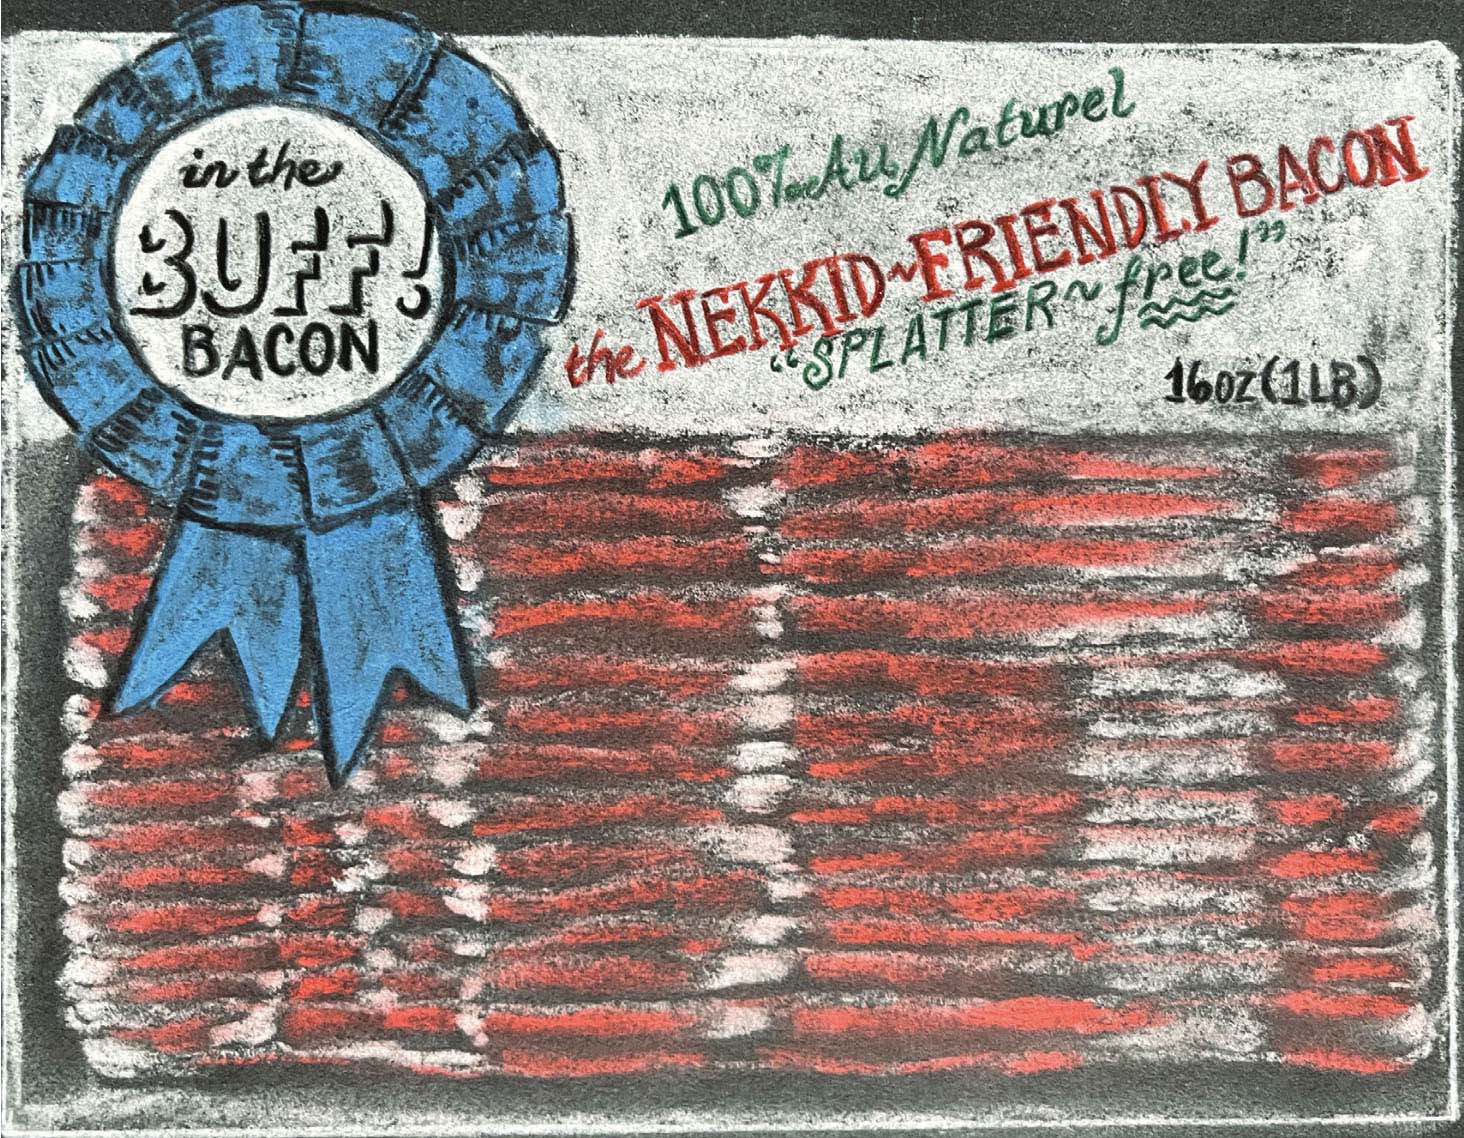 in the
BUFF!
BACON
100% Au Naturel
the NEKKID~FRIENDLY BACON
"SPLATTER~free!"
16oz (1LB)